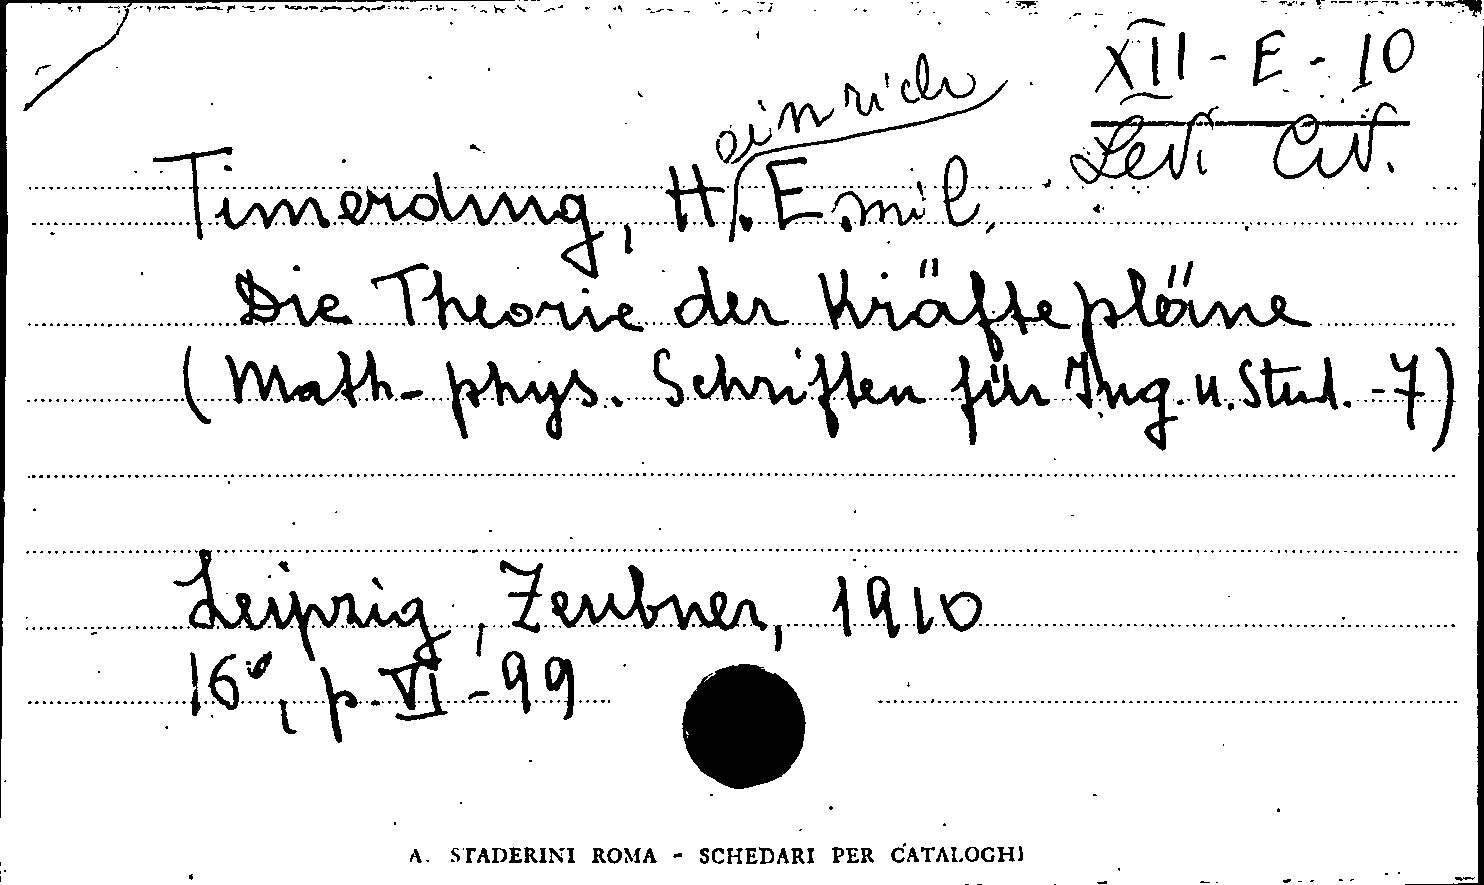 XII - E - 10
Levi Civ.
Timerding, Heinrich Emil.
Die Theorie der Kräftepläne
(Math-phys. Schriften für Ing. u. Stud. - 7)
Leipzig, Teubner, 1910
16°, p. VI - 99
A. STADERINI ROMA - SCHEDARI PER CATALOGHI